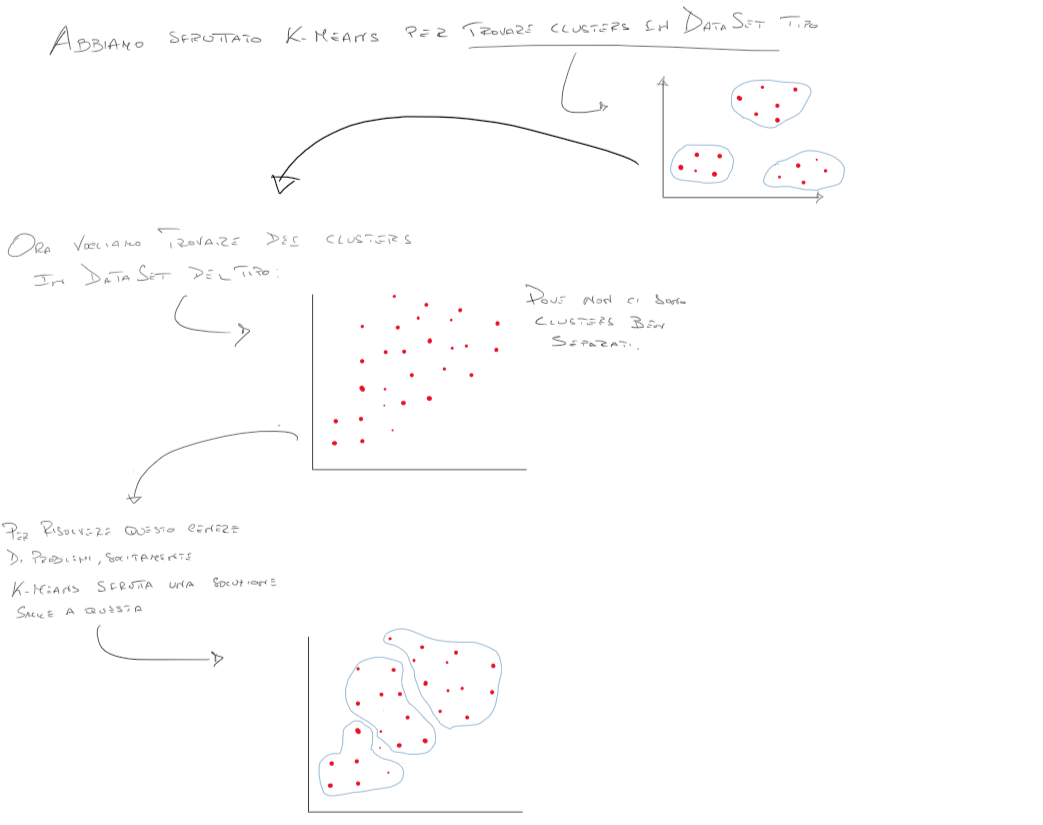 ABBIAMO SFRUTTATO K-MEANS PER TROVARE CLUSTERS IN DATASET TIPO
ORA VOGLIAMO TROVARE DEI CLUSTERS
IN DATASET DEL TIPO:
DOVE NON CI SONO
CLUSTERS BEN
SEPARATI.
PER RISOLVERE QUESTO GENERE
DI PROBLEMI, SOLITAMENTE
K-MEANS SFRUTTA UNA SOLUZIONE
SIMILE A QUESTA